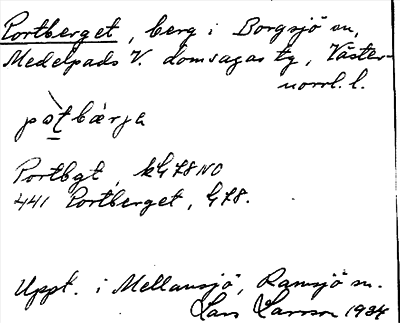 Portberget, berg i Borgsjö sn,
Medelpads V. domsagas tg, Väster-
norrl. l.
pòṯbærja
Portbgt, kG78NO
441 Portberget, G78.
Uppt. i Mellansjö, Ramsjö sn.
Lars Larsson 1934